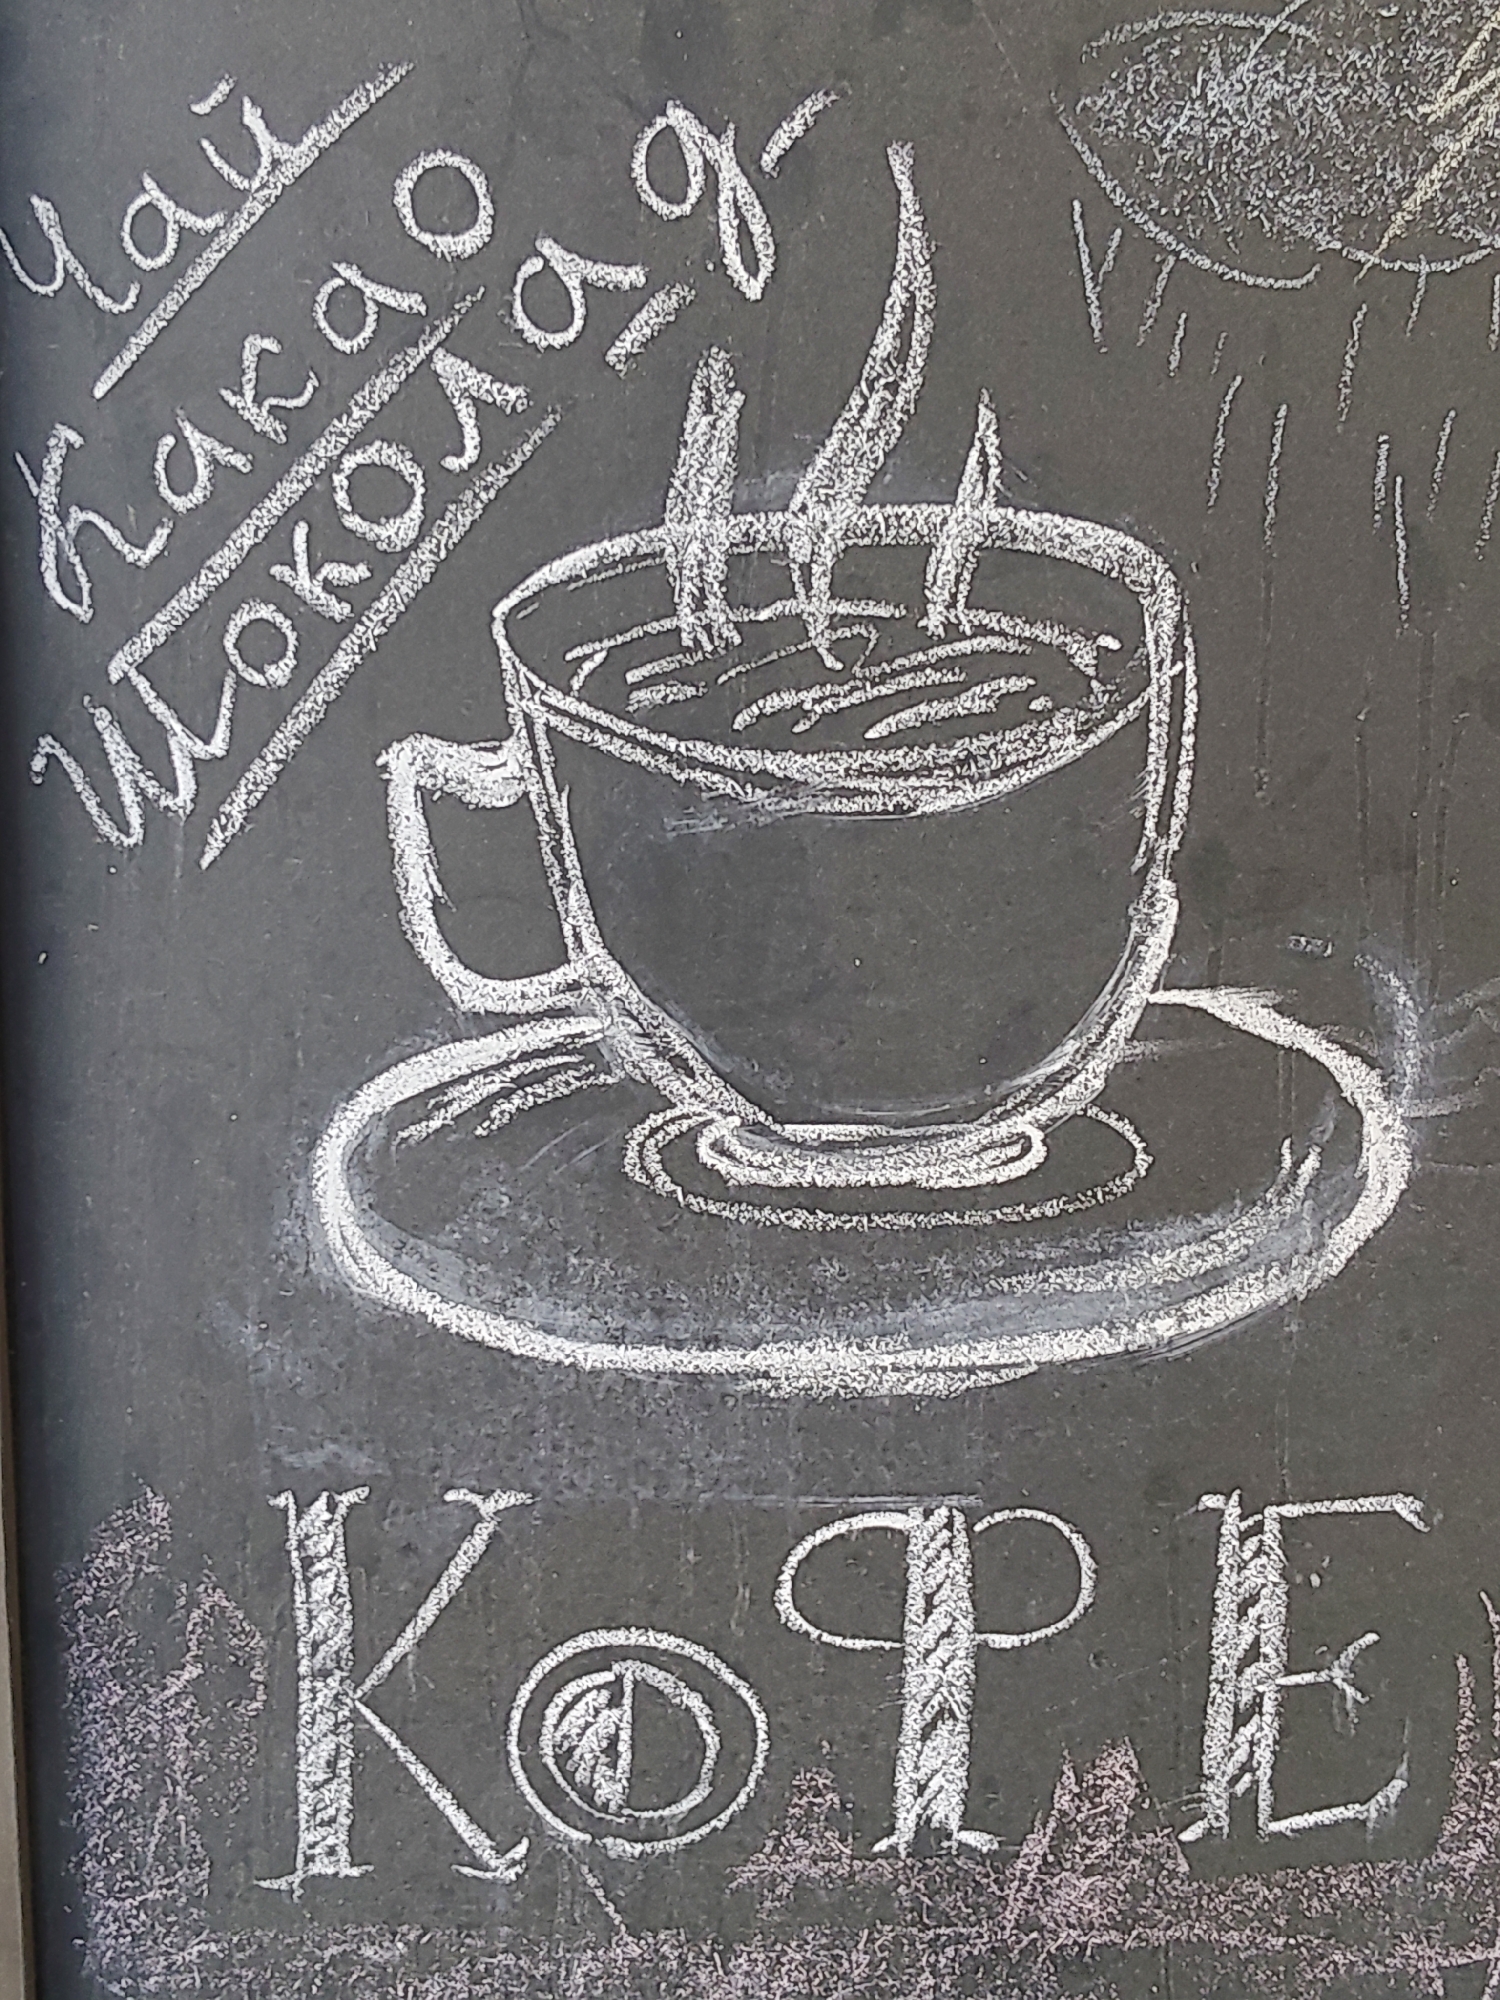 Чай
Какао
Шоколад
КОФЕ